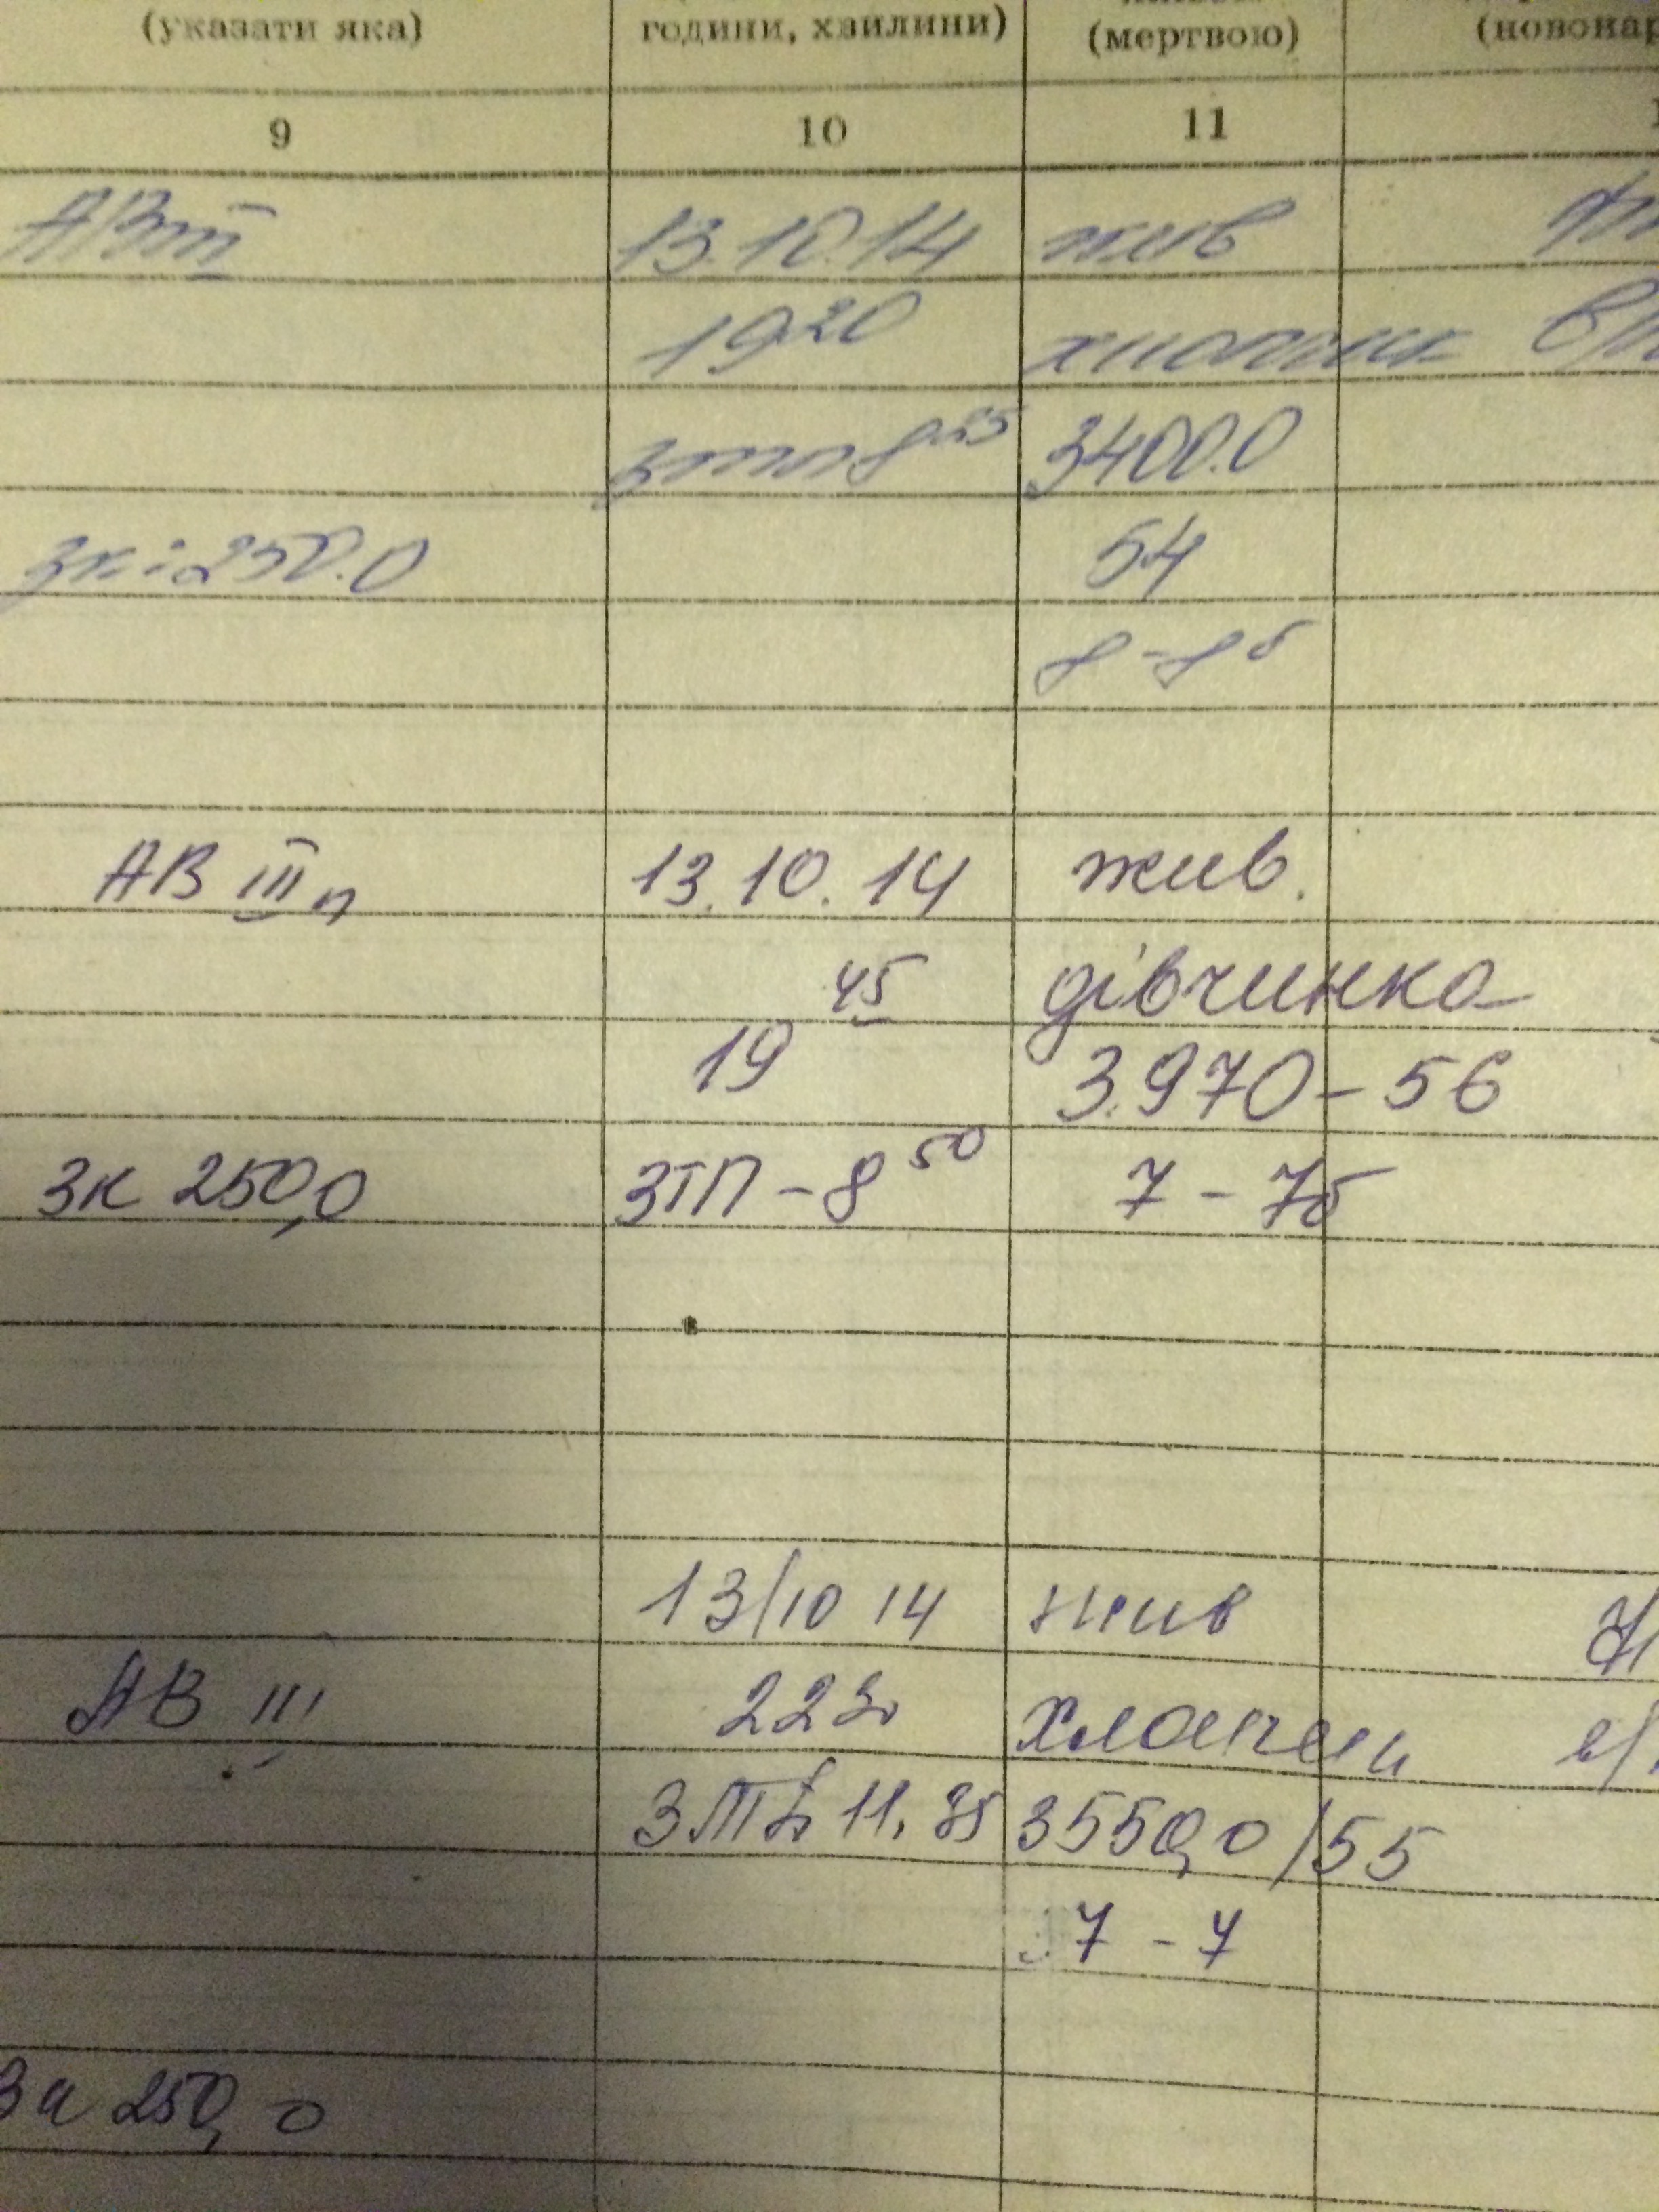 (указати яка) години, хвилини) (мертвою) (новонар
9 10 11 1
АВ III 13.10.14 жив
19 20 хлопчик
ЗТП 8 25 3400.0
Зк: 250.0 54
8 - 8 б
АВ III п 13.10.14 жив.
45 дівчинка
19 3.970 - 56
Зк 250,0 ЗТП - 8 50 7 - 7б
13/10 14 жив
АВ III 22 30 хлопчик
11.35 3550,0 / 55
7 - 7
Зк 250,0